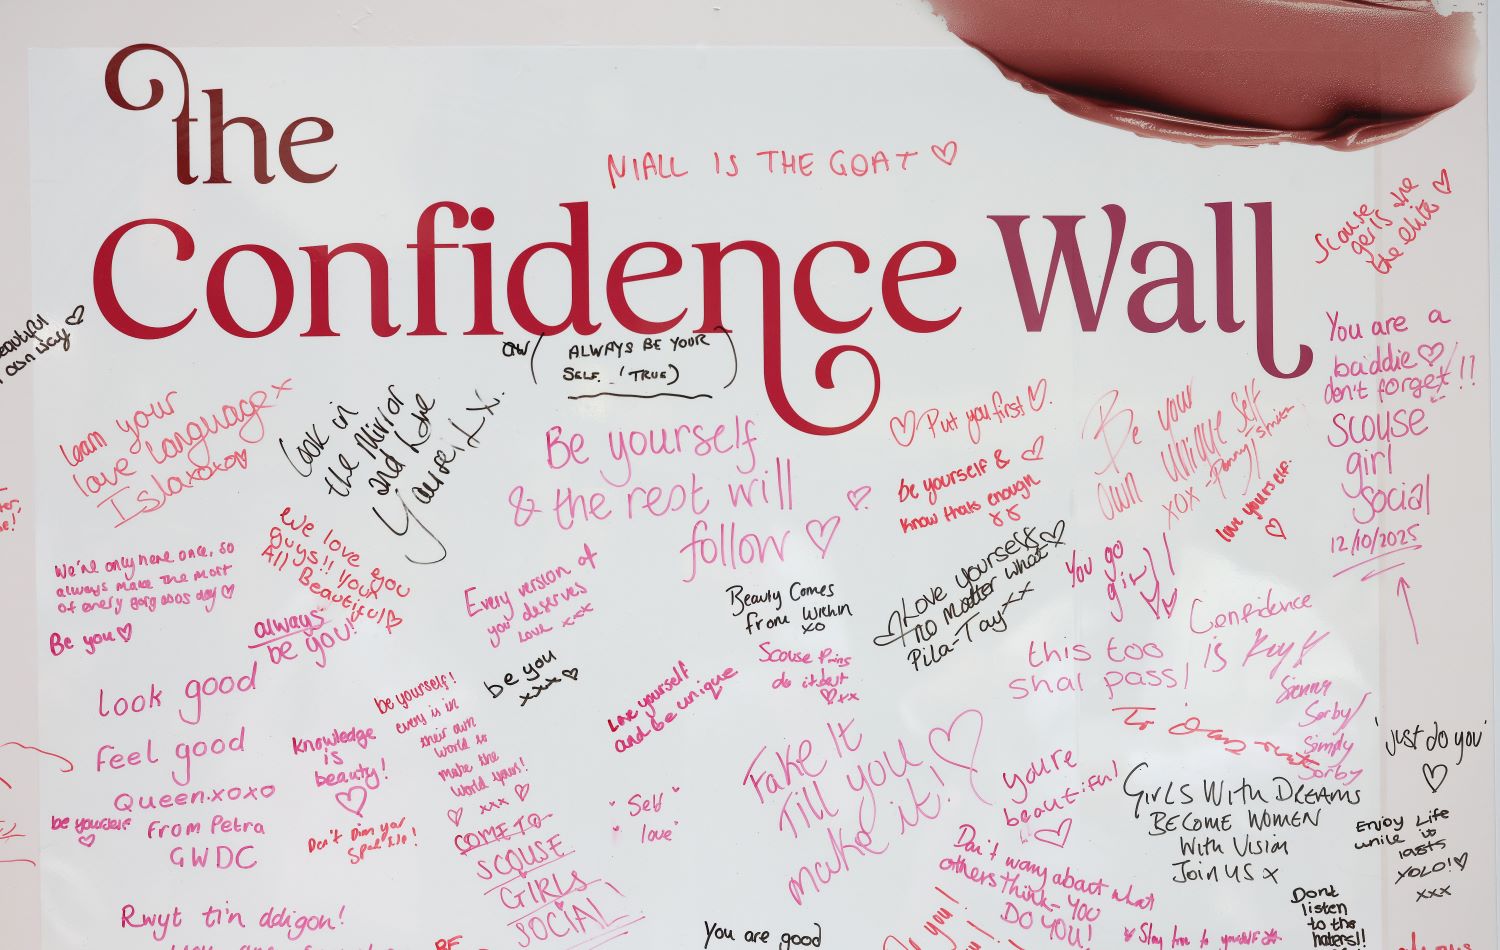 the
Confidence Wall
NIALL IS THE GOAT ♡
Scouse
girls the
the elite ♡
own way ♡
ALWAYS BE YOUR
SELF. (TRUE)
You are a
baddie ♡
don't forget!!
scouse
girl
social
12/10/2025
learn your
love language x
Isla xoxo♡
Look in
the Mirror
and Love
Yourself X.
Be yourself
& the rest will
follow ♡
♡ Put you first ♡.
be yourself & ♡
know thats enough
Be your
own unique self
xox - Penny Smith
love yourself.
♡
We're only here once, so
always make the most
of every day ♡
Be you ♡
We love you
Guys!! Your
All Beautiful ♡
always
be you!
Every version of
you deserves
Love xxx
be you
xxx ♡
Beauty Comes
from within
xo
Love yourself ♡
no matter what
Pila-Tay xx
You go
girl!!
Confidence
is Key
this too
shal pass!
Scouse Pins
do it best
♡xx
Love yourself
and be unique
Sienna
Sorby
Simply
Sorby
look good
Feel good
Queen.xoxo
From Petra
GWDC
be yourself
♡
Knowledge
is
beauty!
♡
Don't Dim your
Sparkle!
be yourself!
every is in
their own
world so
make the
world yours!
♡ xxx ♡
COME TO
SCOUSE
GIRLS
SOCIAL
"Self
love"
Fake It
Till you
make it! ♡
youre
beautiful
♡
'just do you'
♡
GIRLS WITH DREAMS
BECOME WOMEN
With Vision
Join US x
ENJOY LIFE
while it
lasts
YOLO! ♡
xxx
Don't worry about what
others think - YOU
DO YOU!
Dont
listen
to the
haters!!
Rwyt ti'n ddigon!
You are good
Stay true to yourself